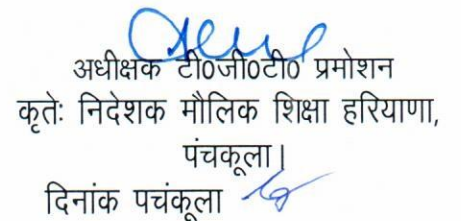 अधीक्षक टी0जी0टी0 प्रमोशन
कृतेः निदेशक मौलिक शिक्षा हरियाणा,
पंचकूला।
दिनांक पचंकूला